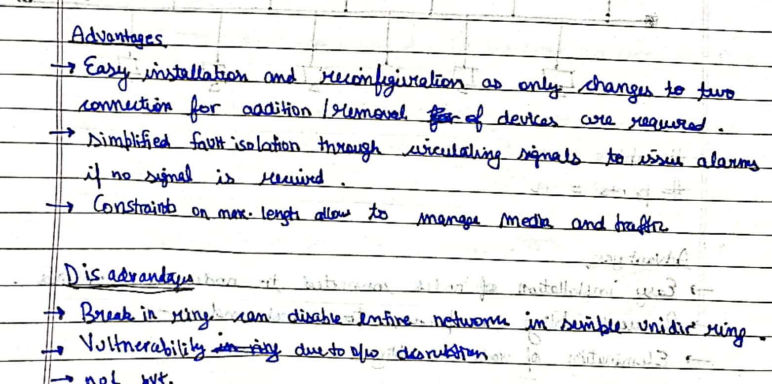 Advantages
→ Easy installation and reconfiguration as only changes to two
connection for addition / removal of devices are required.
→ simplified fault isolation through circulating signals to issue alarms
if no signal is received.
→ Constraints on max. length allow to manage media and traffic
Disadvantages
→ Break in ring can disable entire network in simple unidir ring.
→ Vultnerability due to n/w
→ not